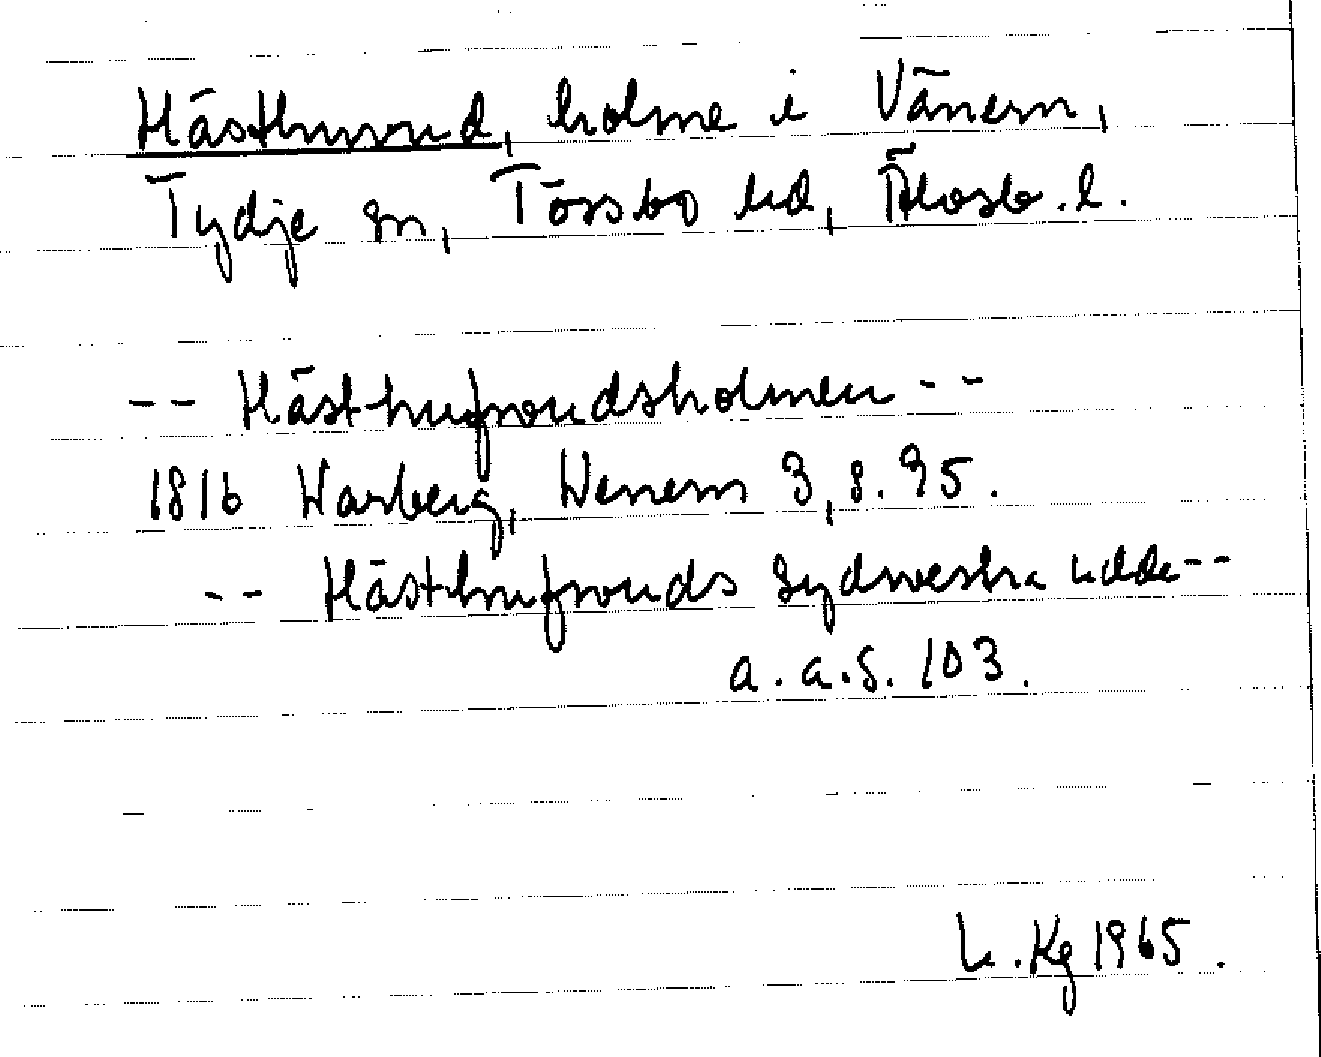 Hästhuvud, holme i Vänern,
Tydje sn, Tössbo hd, Älvsb. l.
-- Hästhufvudsholmen --
1816 Warberg, Wenern 3, s. 95.
-- Hästhufvuds sydvestra udde --
a. a. s. 103.
Kg 1965.